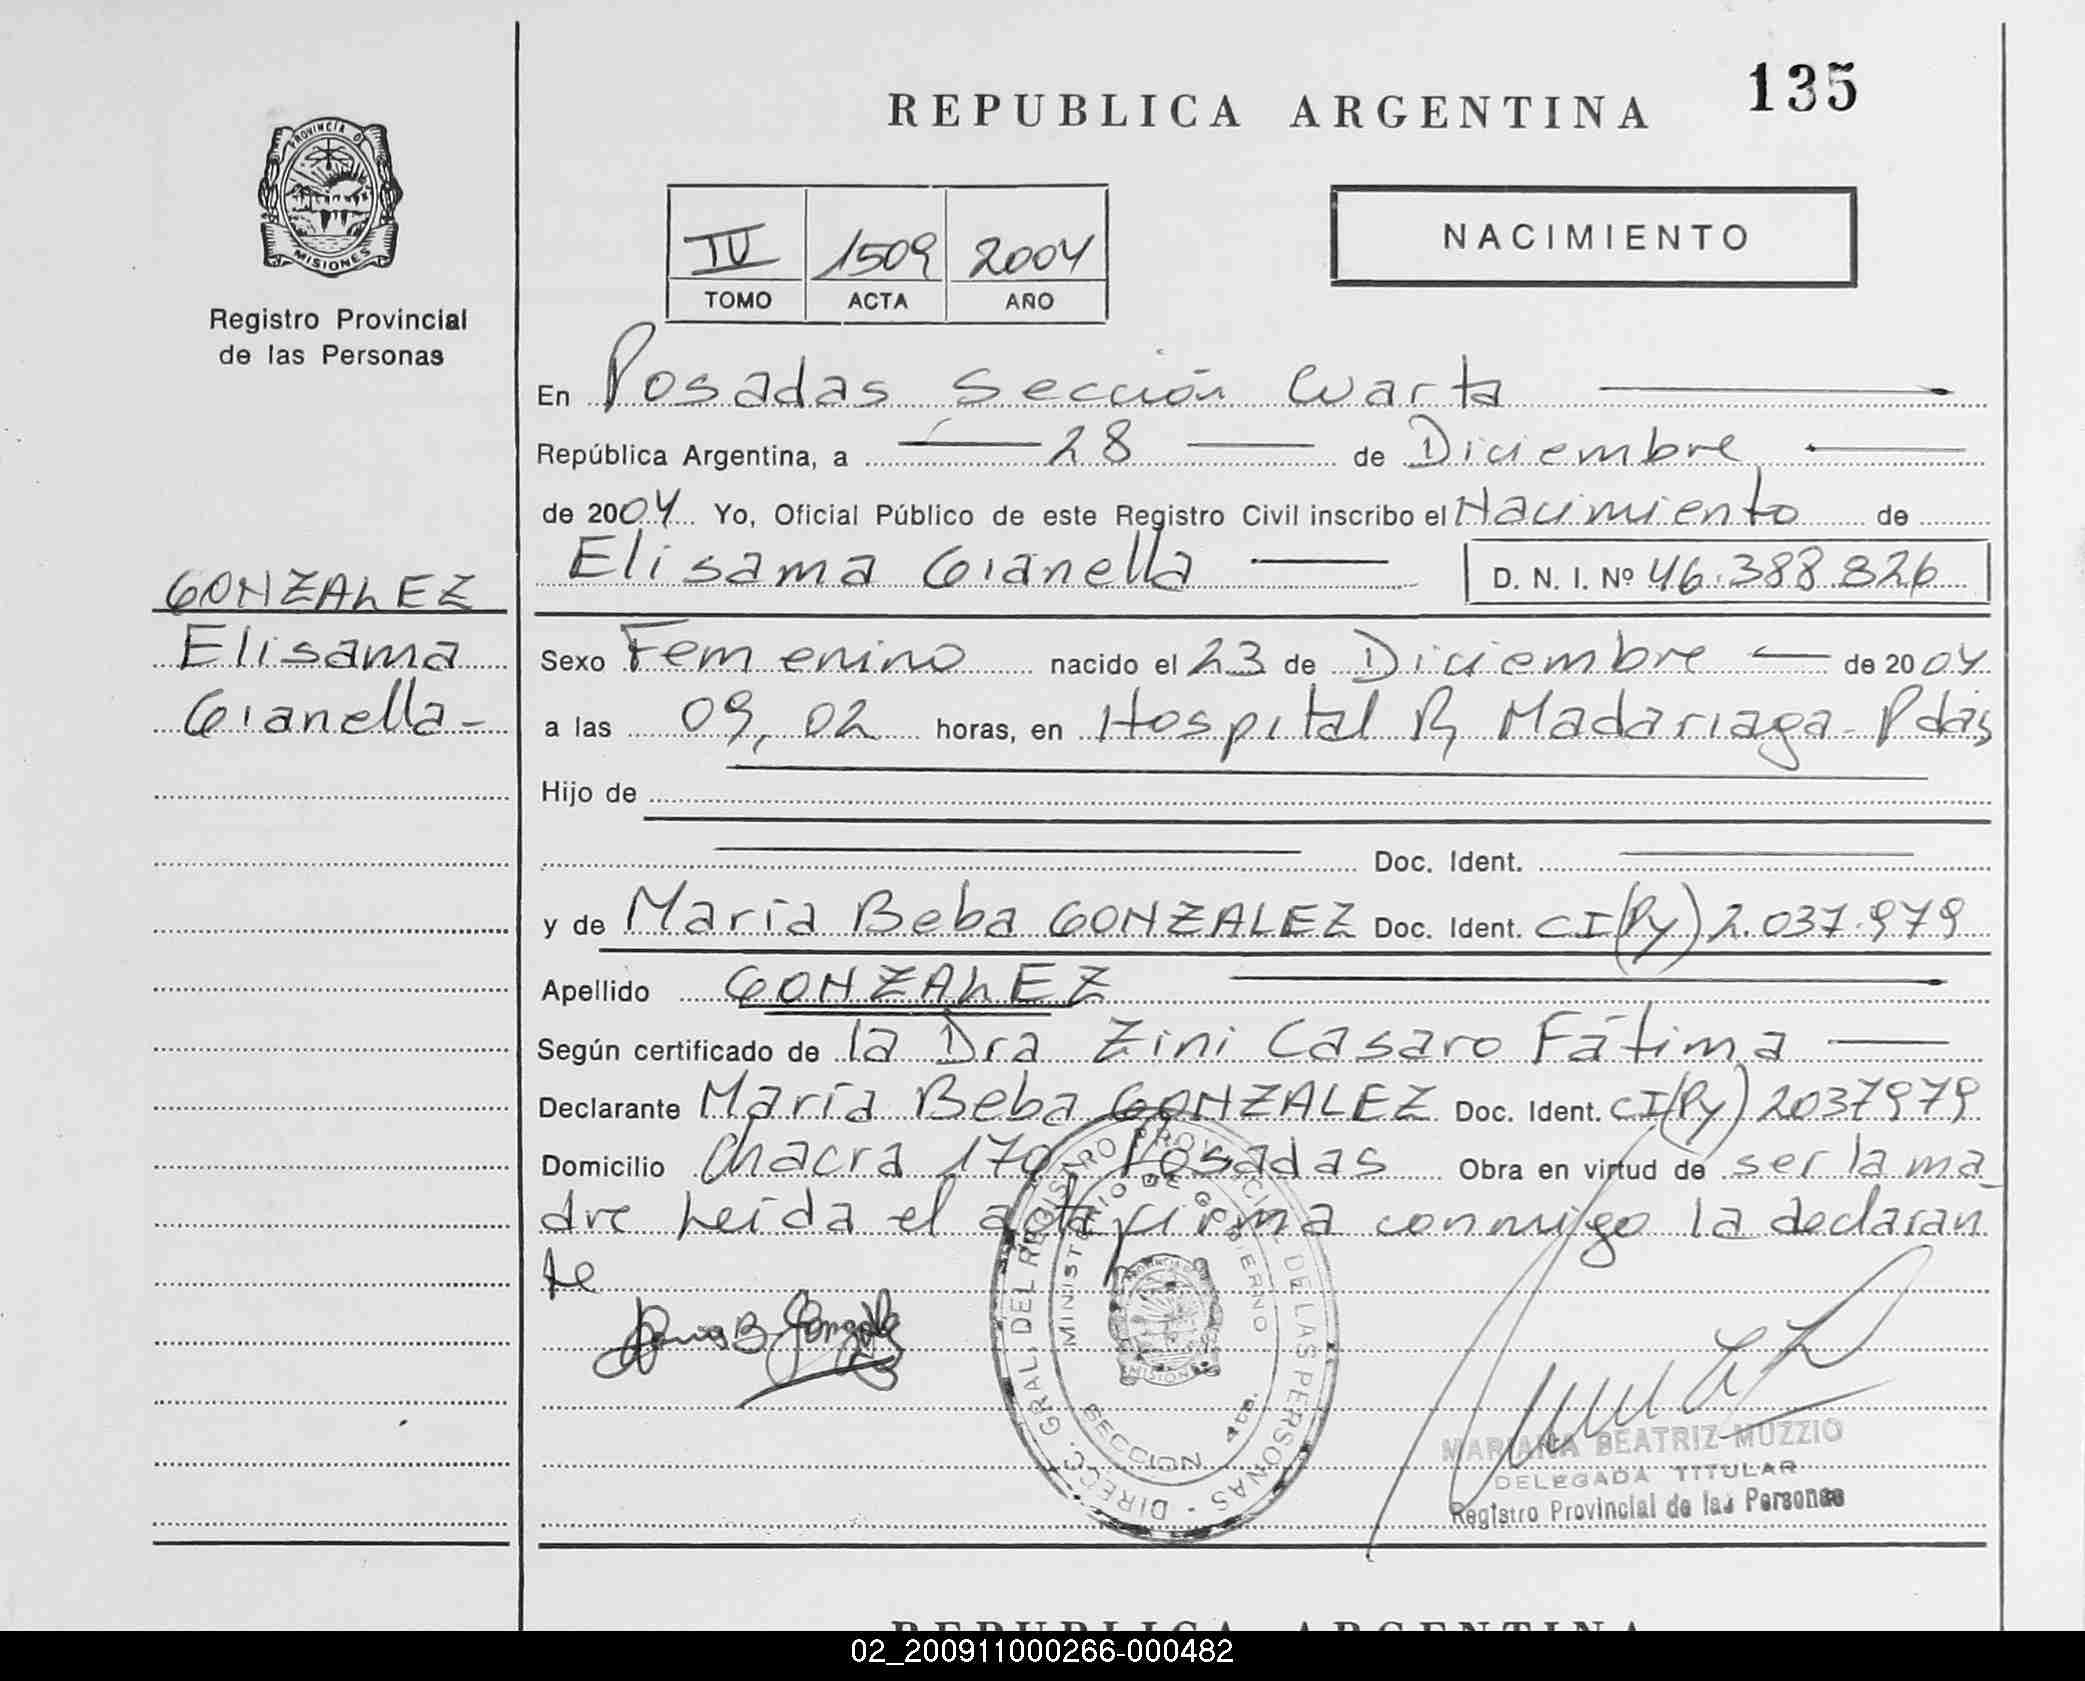 135
REPUBLICA ARGENTINA
PROVINCIA DE
MISIONES
Registro Provincial
de las Personas
NACIMIENTO
IV 1509 2004
TOMO ACTA AÑO
En Posadas Sección Cuarta
República Argentina, a 28 de Diciembre
de 2004 Yo, Oficial Público de este Registro Civil inscribo el Nacimiento de
Elisama Gianella D. N. I. Nº 46.388.826
GONZALEZ
Elisama
Gianella-
Sexo Femenino nacido el 23 de Diciembre de 2004
a las 09,02 horas, en Hospital R Madariaga-Pdas
Hijo de
Doc. Ident.
y de María Beba GONZALEZ Doc. Ident. CI(Py) 2.037.979
Apellido GONZALEZ
Según certificado de la Dra Zini Casaro Fátima
Declarante María Beba GONZALEZ Doc. Ident. CI(Py) 2037979
Domicilio Chacra 179 Posadas Obra en virtud de ser la ma
dre Leída el acta firma conmigo la declaran
te
DIRECC. GRAL. DEL REGISTRO PROVINCIAL DE LAS PERSONAS -
MINISTERIO DE GOBIERNO
SECCION 4ta.
MISIONES
MARIANA BEATRIZ MUZZIO
DELEGADA TITULAR
Registro Provincial de las Personas
REPUBLICA ARGENTINA
02_200911000266-000482